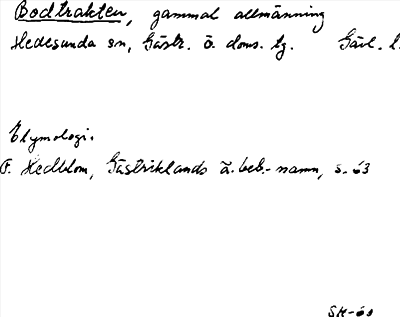 Bodtrakten, gammal allmänning
Hedesunda sn, Gästr. ö. doms. tg. Gävl. l.
Etymologi.
F. Hedblom, Gästriklands ä. beb.-namn, s. 63